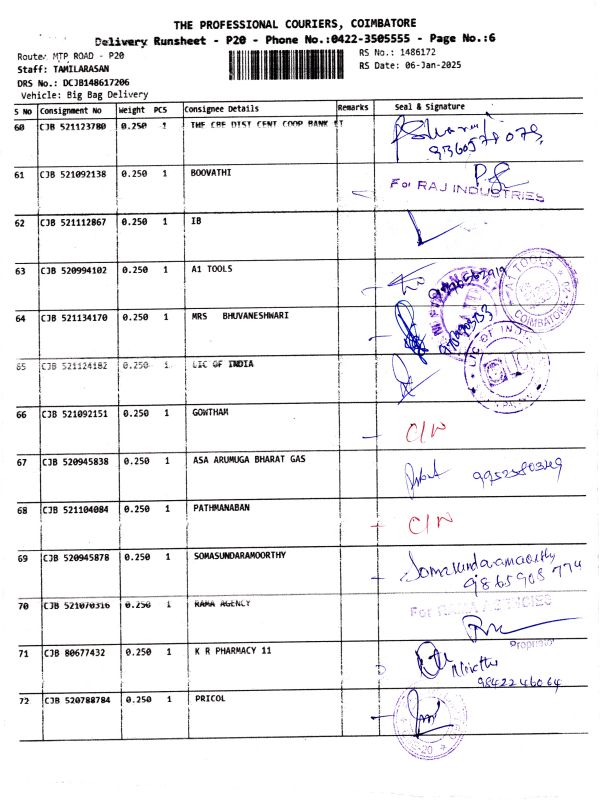 THE PROFESSIONAL COURIERS, COIMBATORE
Delivery Runsheet - P20 - Phone No.:0422-3505555 - Page No.:6
Route: MTP ROAD - P20
RS No.: 1486172
Staff: TAMILARASAN
RS Date: 06-Jan-2025
DRS No.: DCJB148617206
Vehicle: Big Bag Delivery
S No Consignment No Weight PCS Consignee Details Remarks Seal & Signature
60 CJB 521123780 0.250 1 THE CBE DIST CENT COOP BANK
61 CJB 521092138 0.250 1 BOOVATHI
For RAJ INDUSTRIES
62 CJB 521112867 0.250 1 IB
63 CJB 520994102 0.250 1 A1 TOOLS
A1 TOOLS
COIMBATORE
64 CJB 521134170 0.250 1 MRS BHUVANESHWARI
65 CJB 521124182 0.250 1 LIC OF INDIA
LIC OF INDIA
LIC
66 CJB 521092151 0.250 1 GOWTHAM
C/N
67 CJB 520945838 0.250 1 ASA ARUMUGA BHARAT GAS
68 CJB 521104084 0.250 1 PATHMANABAN
C/N
69 CJB 520945878 0.250 1 SOMASUNDARAMOORTHY
Somasundaramoorthy
9865908774
70 CJB 521070316 0.250 1 RAMA AGENCY
For RAMA AGENCIES
Proprietor
71 CJB 80677432 0.250 1 K R PHARMACY 11
9842246064
72 CJB 520788784 0.250 1 PRICOL